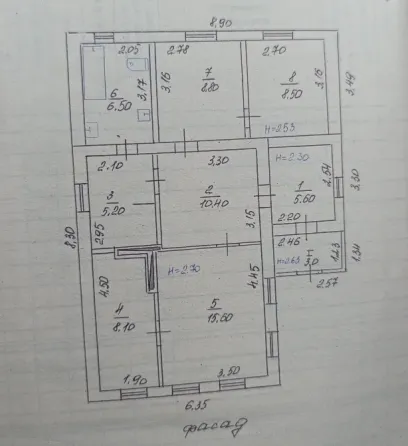 8,90
2.05
2.78
2.70
6
6.50
3,17
3,15
7
8.80
8
8.50
3,15
3,49
H=2.53
2.10
3,30
H=2.30
3
5.20
2
10.40
1
5.60
2,54
3,30
2.95
3,15
2.20
8,30
2.46
H=2.70
H=2.63
I
3,0
1,23
1,34
4,50
4,45
2,57
4
8.10
5
15.60
1.90
3.50
6,35
фасад